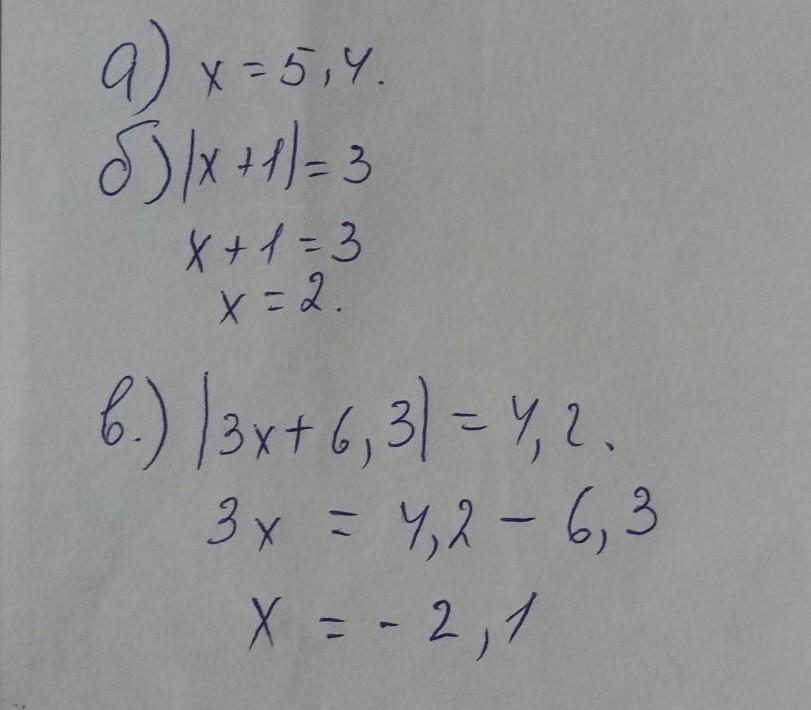 а) x = 5,4.
б) |x + 1| = 3
x + 1 = 3
x = 2.
в.) |3x + 6,3| = 4,2.
3x = 4,2 - 6,3
x = - 2,1